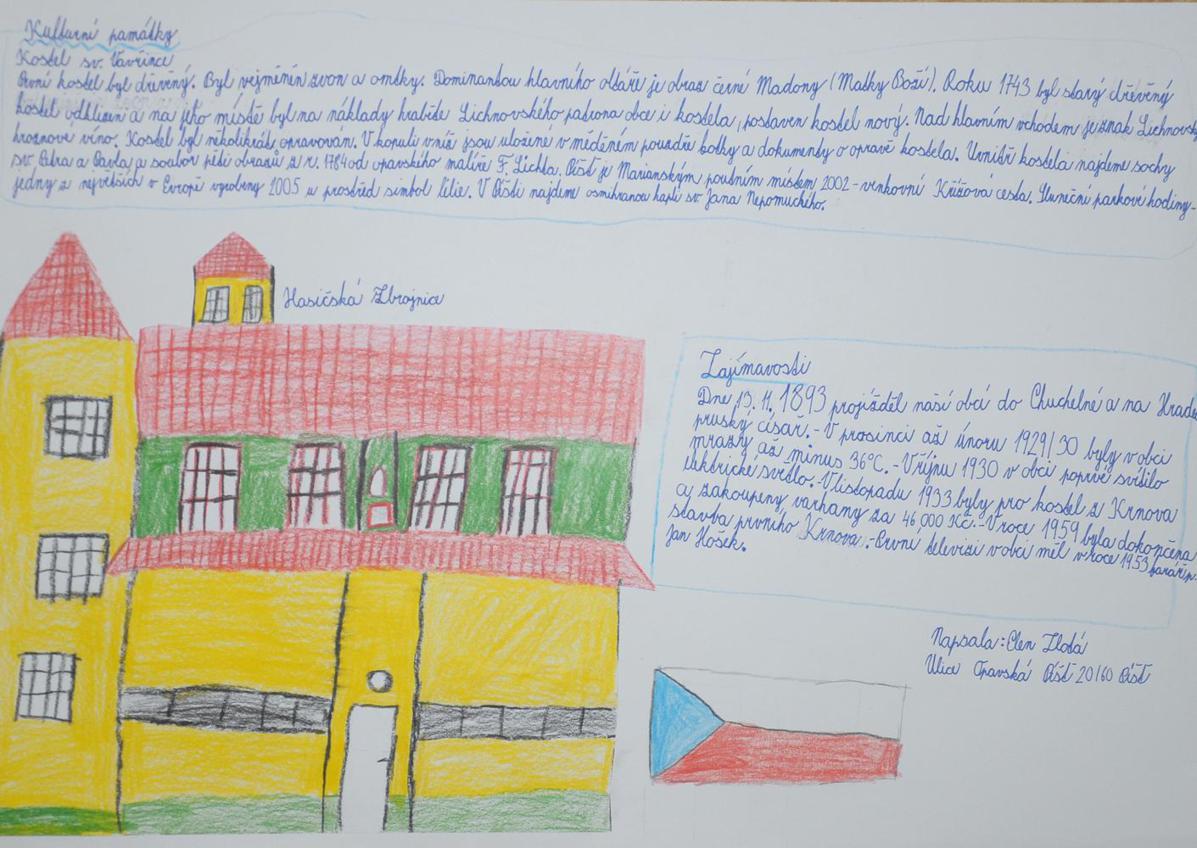 Kulturní památky
Kostel sv. Vavřince
První kostel byl dřevěný. Byl vejměněn zvon a omítky. Dominantou hlavního oltáře je obraz černé Madony (Matky Boží). Roku 1743 byl starý dřevěný
kostel odklizen a na jeho místě byl na náklady hraběte Lichnovského patrona obce i kostela, postaven kostel nový. Nad hlavním vchodem je znak Lichnovsk
hroznové víno. Kostel byl několikrát opravován. V kopuli věže jsou uložené v měděném pouzdře fotky a dokumenty o opravě kostela. Uvnitř kostela najdeme sochy
sv. Petra a Pavla, a soubor pěti obrazů z r. 1784 od opavského malíře F. Lichta. Píšť je Marianským poutním místem 2002 - venkovní Křížová cesta. Sluneční parkové hodiny-
jedny z největších v Evropě vyrobeny 2005 u prostřed simbol lilie. V Píšti najdem osmihranou kapli sv. Jana Nepomuckého.
Hasičská Zbrojnice
Zajímavosti
Dne 13. 11. 1893 projížděl naší obcí do Chuchelné a na Hradec
pruský císař. - V prosinci až únoru 1929/30 byly v obci
mrazy až minus 36°C. - V říjnu 1930 v obci poprvé svítilo
elektrické světlo. - V listopadu 1933 byly pro kostel z Krnova
zakoupeny varhany za 46 000 Kč. - V roce 1959 byla dokončena
stavba prvního Krnova. - První televizi v obci měl v roce 1953 farář p.
Jan Hosek.
Napsala: Elen Zlodá
Ulice Opavská Píšť 20/60 Píšť